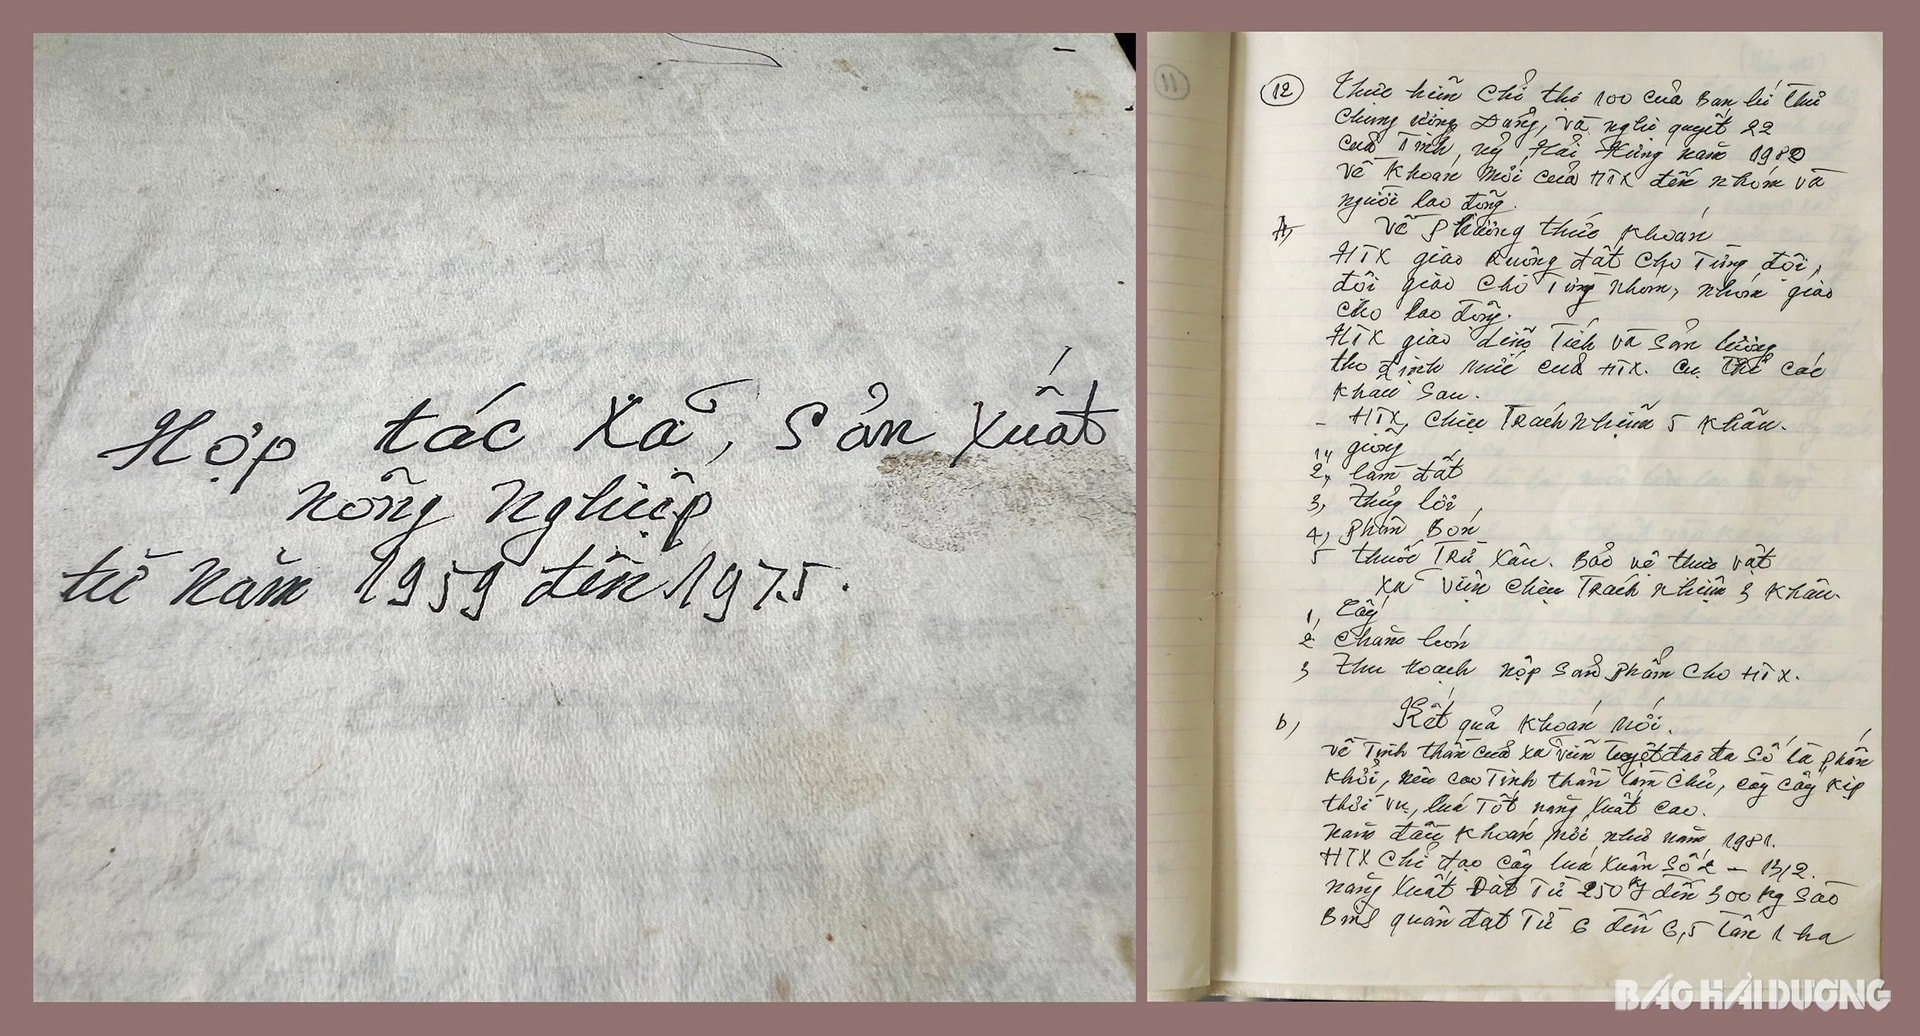 Hợp tác Xã, Sản Xuất
nông nghiệp
từ năm 1959 đến 1975.
11
12
Thực hiện Chỉ thị 100 của Ban bí thư
Chung ương Đảng, Và nghị quyết 22
của Tỉnh uỷ Hải Hưng năm 1980
Về Khoán mới của HTX đến nhóm và
người lao động.
A, Về phương thức khoán
HTX giao Ruộng đất cho Từng đội,
đội giao Cho Từng nhóm, nhóm giao
cho lao động.
HTX giao diện Tích và Sản lượng
theo định mức của HTX. Cụ Thể các
Khâu Sau.
- HTX, Chịu Trách nhiệm 5 Khâu.
1, giống
2, làm đất
3, Thủy lợi
4, phân Bón
5 thuốc Trừ Xâu. Bảo vệ thực vật
Xã viên chịu Trách nhiệm 3 Khâu.
1, Cấy
2 Chăm bón
3 Thu hoạch nộp sản phẩm cho HTX.
b, Kết quả Khoán mới.
Về Tinh thần của Xã viên tuyệt đại đa Số là phấn
Khởi, nêu cao Tinh thần làm chủ, cày cấy kịp
thời vụ, lúa Tốt năng Xuất cao.
năm đầu Khoán mới như năm 1981.
HTX Chỉ đạo Cấy lúa Xuân Số 2 - 13/2.
năng Xuất Đạt Từ 250 kg đến 300 kg Sào
Bình quân đạt Từ 6 đến 6,5 Tấn 1 ha
BÁO HẢI DƯƠNG